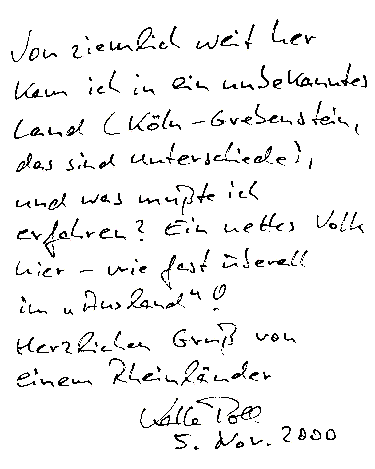 Von ziemlich weit her
kam ich in ein unbekanntes
Land (Köln - Grebenstein,
das sind Unterschiede),
und was mußte ich
erfahren? Ein nettes Volk
hier - wie fast überall
im "Ausland"!
Herzlichen Gruß von
einem Rheinländer
Kalle Pohl
5. Nov. 2000